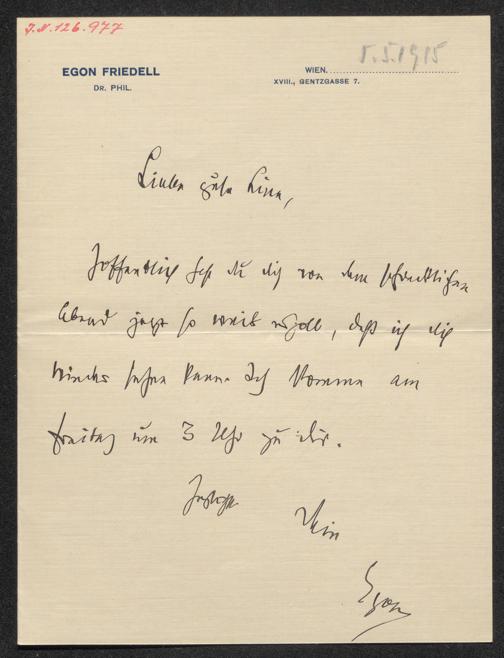 J.N. 126.977
EGON FRIEDELL
DR. PHIL.
WIEN, 5.5.1915
XVIII., GENTZGASSE 7.
Liebe gute Lina,
hoffentlich hast du dich von dem schrecklichen
Abend jetzt so weit erholt, daß ich dich
wieder sehen kann. Ich komme am
Freitag um 3 Uhr zu dir.
Dein
Egon